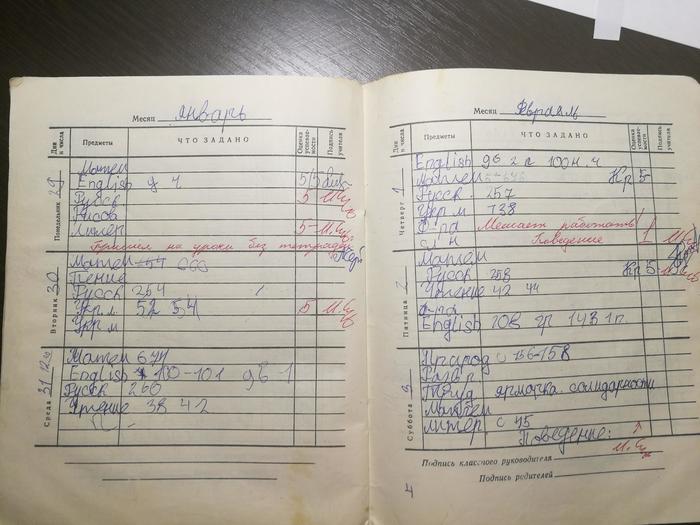 Месяц январь
Дни и числа Предметы ЧТО ЗАДАНО Оценка успеваемости Подпись учителя
Понедельник 29
Матем
English 9 4 5/5
Русск 5
Русск
Литер 5-
Пришел на уроки без тетрадей
Вторник 30
Матем 666
Пение
Русск 254
Укр м 52 54 5
Укр м
Среда 31
Матем 671
English 100-101 96-1
Русск 260
Чтение 38 42
Месяц Февраль
Дни и числа Предметы ЧТО ЗАДАНО Оценка успеваемости Подпись учителя
Четверг 1
English 96 2 100 н. 4
Матем Кр 5
Русск. 257
Укр м 738
Ф-ра Мешает работать
Поведение 1
Пятница 2
Матем
Русск 258 Кр 5-
Чтение 42 44
Ф-ра
English 108 143 1
Суббота 3
Природ с 156-158
Труд ярмарка солидарности
Матем
Литер. с 45
Поведение:
Подпись классного руководителя
Подпись родителей
4